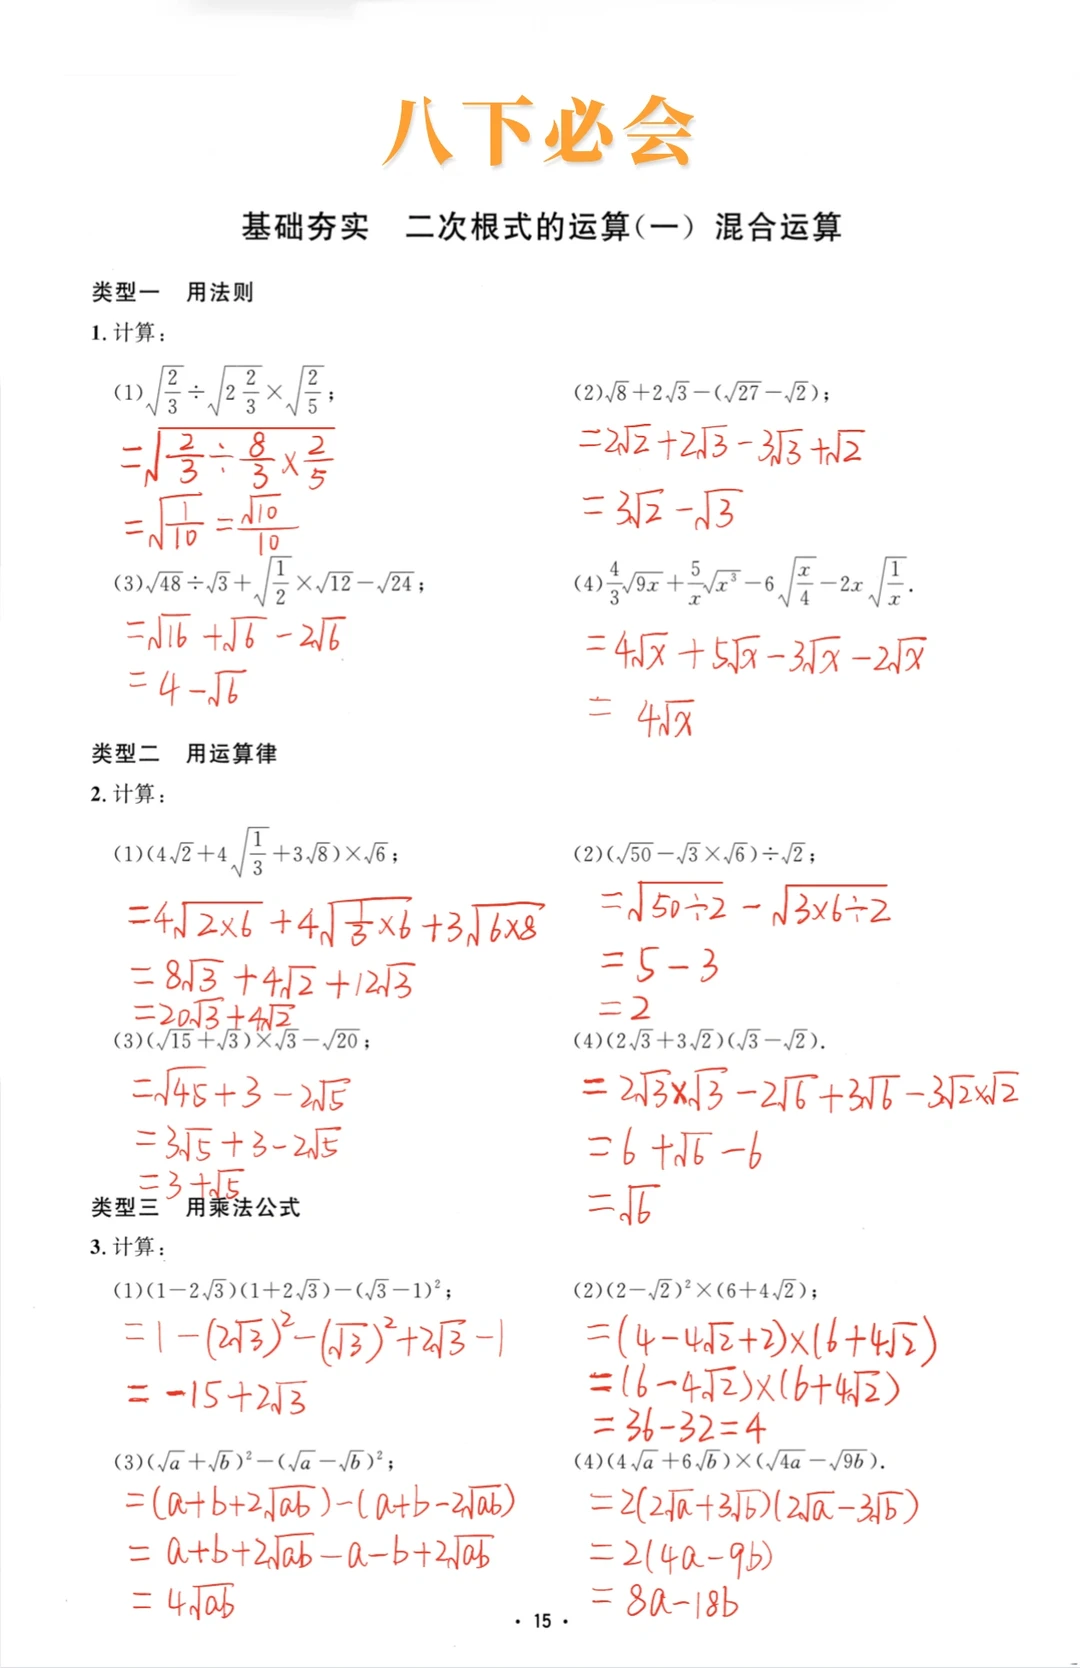 八下必会
基础夯实 二次根式的运算(一) 混合运算
类型一 用法则
1. 计算:
(1)√(2/3)÷√(2 2/3)×√(2/5);
=√(2/3÷8/3×2/5)
=√(1/10)=√10/10
(2)√8+2√3-(√27-√2);
=2√2+2√3-3√3+√2
=3√2-√3
(3)√48÷√3+√(1/2)×√12-√24;
=√16+√6-2√6
=4-√6
(4)4/3√9x+5/x√x³-6√(x/4)-2x√(1/x).
=4√x+5√x-3√x-2√x
=4√x
类型二 用运算律
2. 计算:
(1)(4√2+4√(1/3)+3√8)×√6;
=4√(2×6)+4√(1/3×6)+3√(6×8)
=8√3+4√2+12√3
=20√3+4√2
(2)(√50-√3×√6)÷√2;
=√(50÷2)-√(3×6÷2)
=5-3
=2
(3)(√15+√3)×√3-√20;
=√45+3-2√5
=3√5+3-2√5
=3+√5
(4)(2√3+3√2)(√3-√2).
=2√3×√3-2√6+3√6-3√2×√2
=6+√6-6
=√6
类型三 用乘法公式
3. 计算:
(1)(1-2√3)(1+2√3)-(√3-1)²;
=1-(2√3)²-(√3)²+2√3-1
=-15+2√3
(2)(2-√2)²×(6+4√2);
=(4-4√2+2)×(6+4√2)
=(6-4√2)×(6+4√2)
=36-32=4
(3)(√a+√b)²-(√a-√b)²;
=(a+b+2√ab)-(a+b-2√ab)
=a+b+2√ab-a-b+2√ab
=4√ab
(4)(4√a+6√b)×(√4a-√9b).
=2(2√a+3√b)(2√a-3√b)
=2(4a-9b)
=8a-18b
·15·